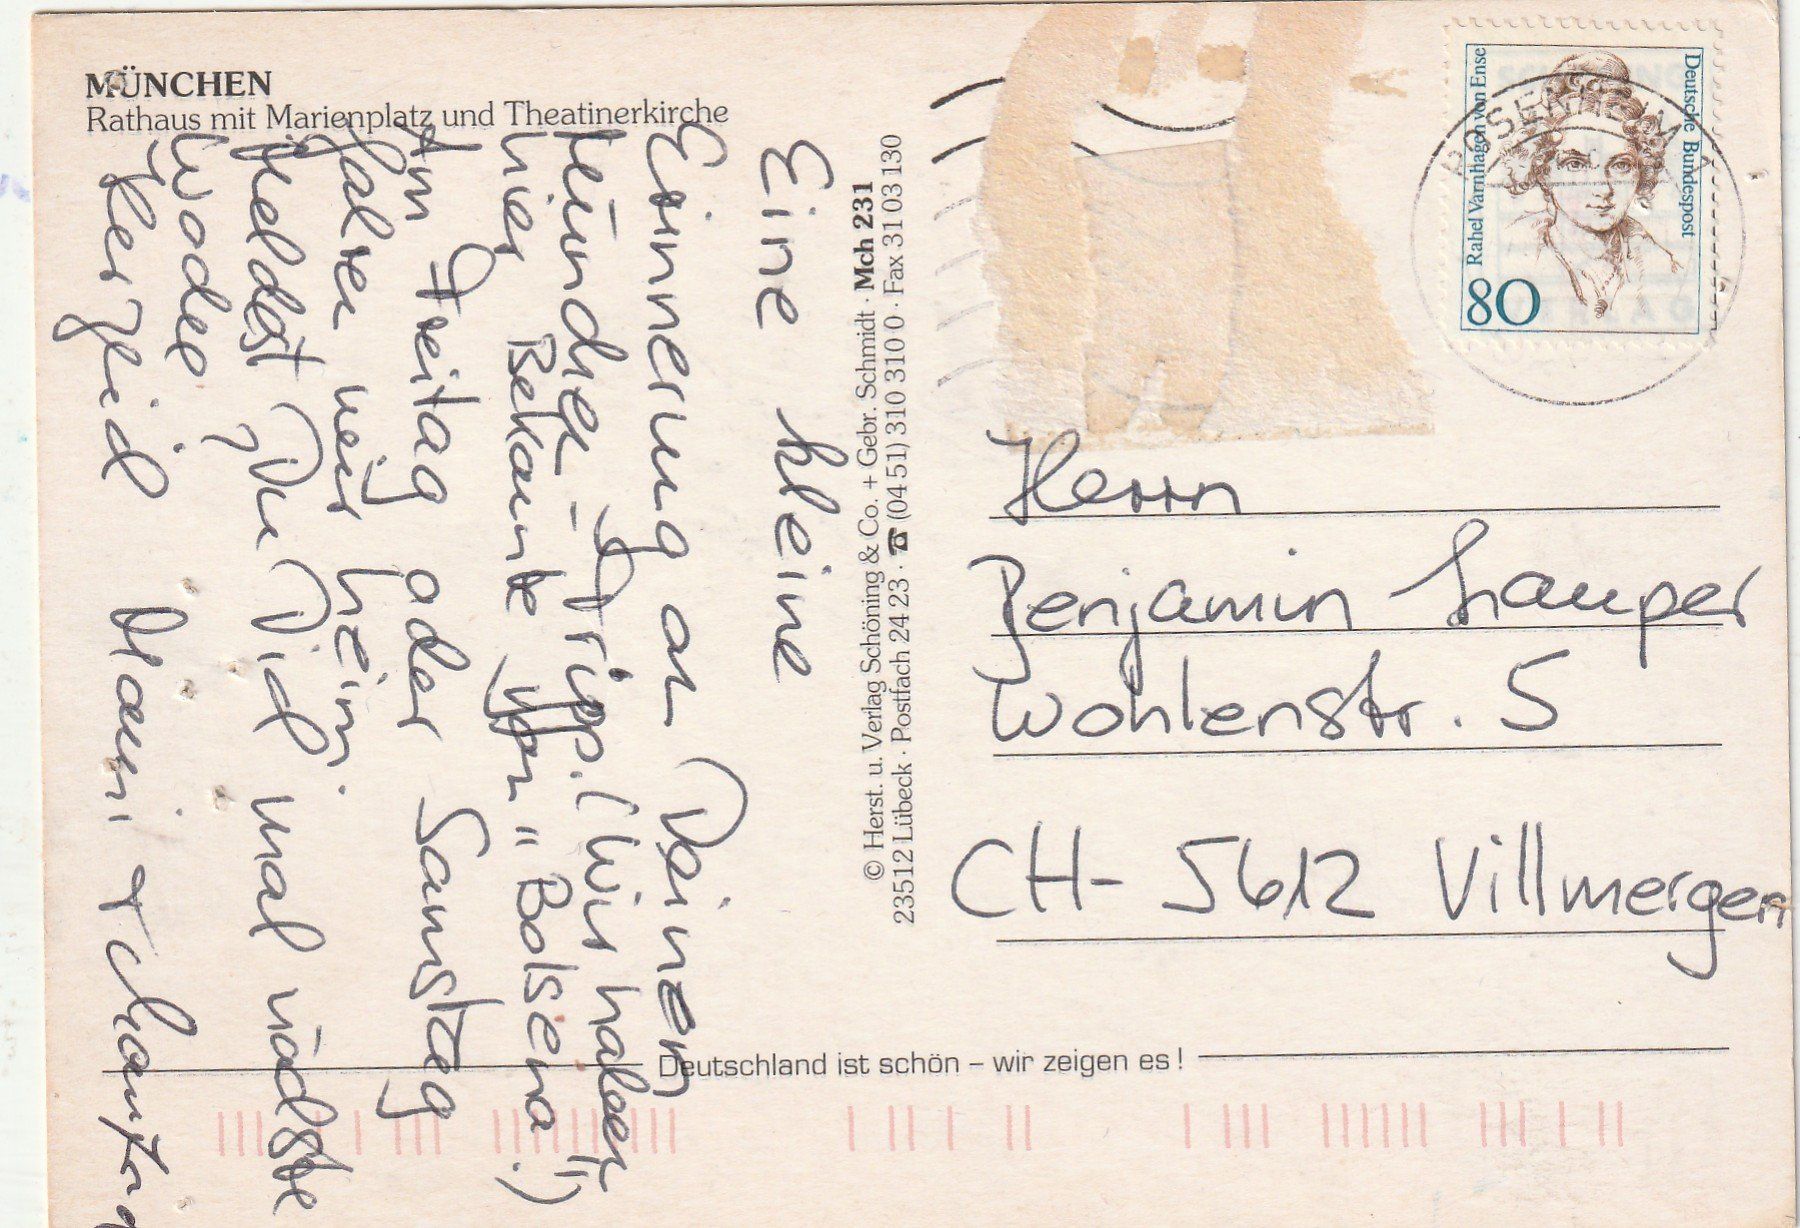 MÜNCHEN
Rathaus mit Marienplatz und Theatinerkirche
Eine kleine
Erinnerung an Deinen
München-Tripp. (Wir haben
hier Bekannte von "Bolsena".)
Am Freitag oder Samstag
fahren wir heim.
Meldest Du Dich mal nächste
Woche?
Herzlich Hanni +
© Herst. u. Verlag Schöning & Co. + Gebr. Schmidt · Mch 231
23512 Lübeck · Postfach 24 23 · ☎ (04 51) 310 310 0 · Fax 31 03 130
Deutsche Bundespost
Rahel Varnhagen von Ense
80
ROSENHEIM
Herrn
Benjamin Lauper
Wohlenstr. 5
CH-5612 Villmergen
Deutschland ist schön – wir zeigen es!